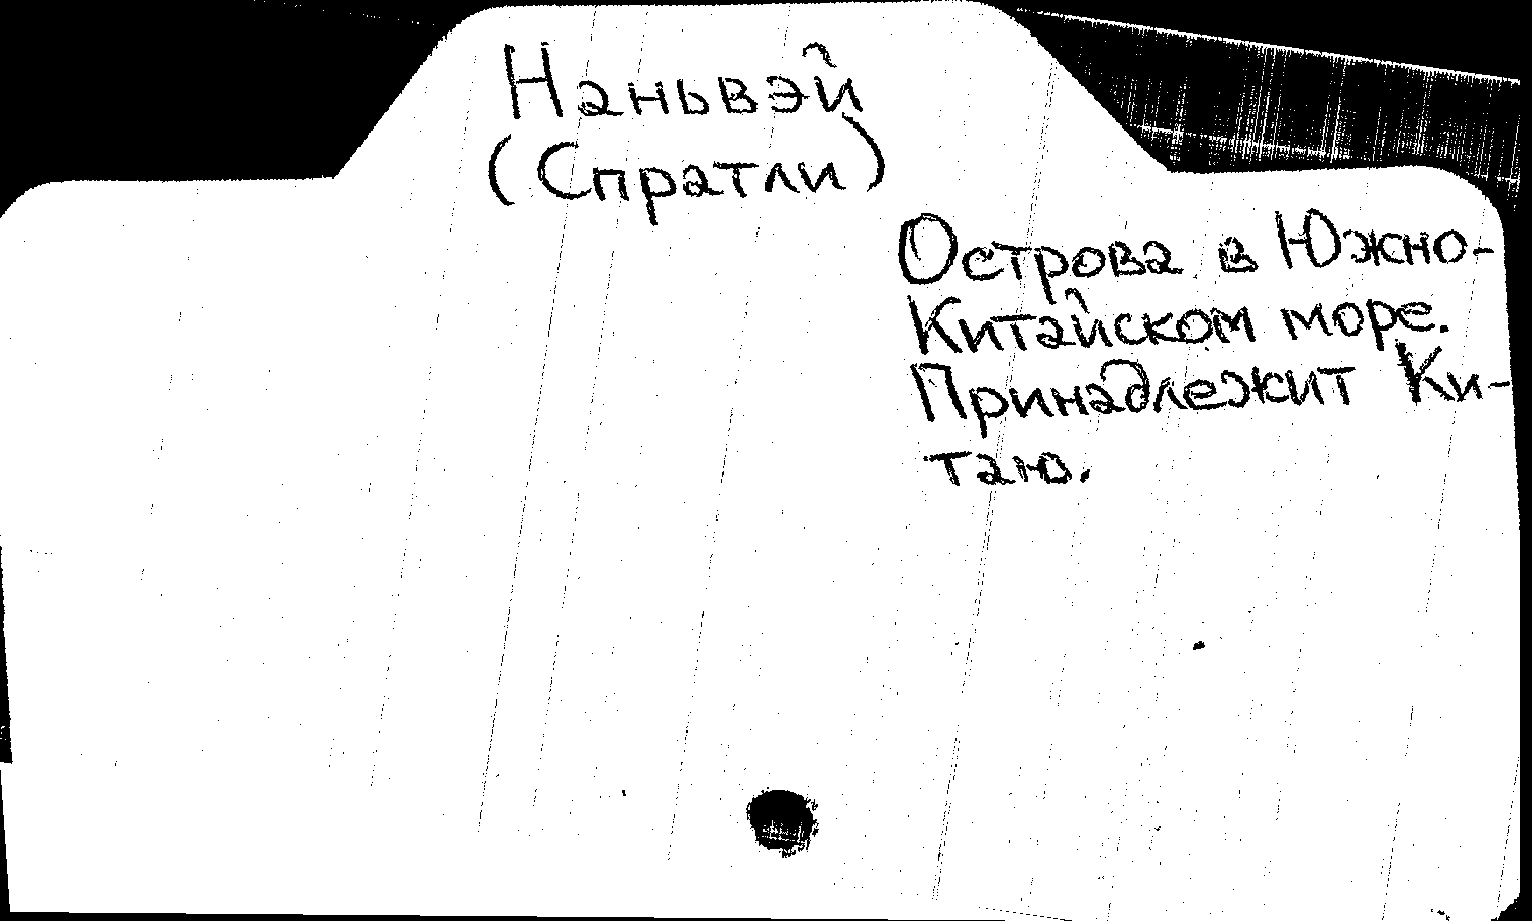 Наньвэй
(Спратли)
Острова в Южно-
Китайском море.
Принадлежит Ки-
таю.